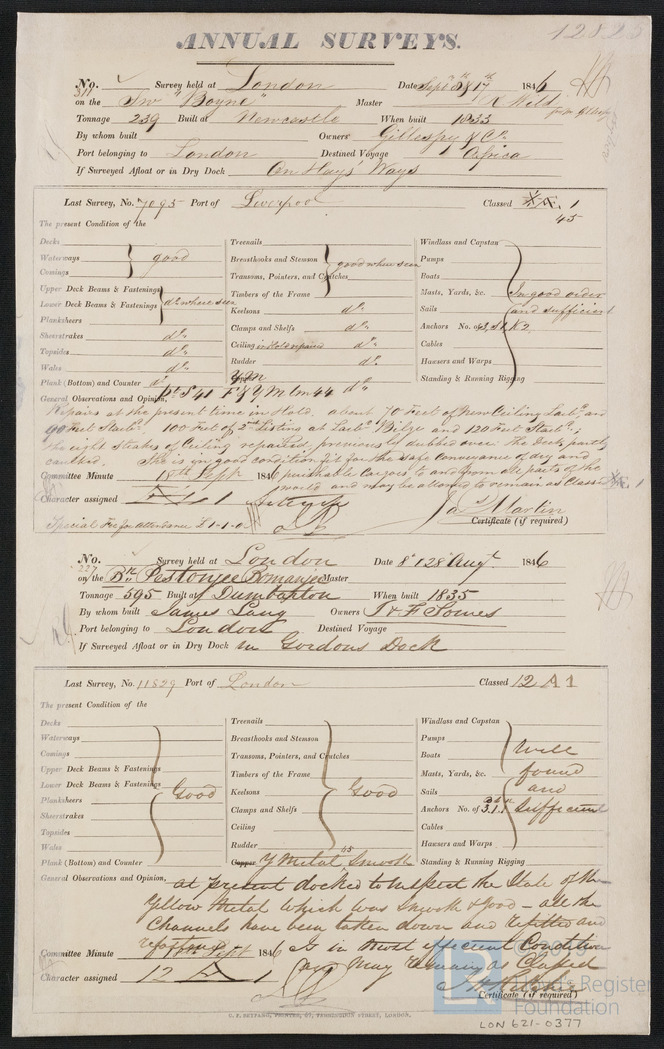 12825
ANNUAL SURVEYS.
No. 311 Survey held at London Date Sept 8 & 17th 1846
on the Snw "Boyne" Master R Wild
Tonnage 239 Built at Newcastle When built 1833
By whom built Owners Gillespy & Co.
Port belonging to London Destined Voyage Africa
If Surveyed Afloat or in Dry Dock On Hays' Ways
Last Survey, No. 7095 Port of Liverpool Classed Æ 1
45
The present Condition of the
Decks Treenails Windlass and Capstan
Waterways good Breasthooks and Stemson good where seen Pumps
Comings Transoms, Pointers, and Crutches Boats
Upper Deck Beams & Fastenings Timbers of the Frame Masts, Yards, &c. In good order
Lower Deck Beams & Fastenings do. where seen Keelsons do. Sails and sufficient
Planksheers Clamps and Shelfs do. Anchors No. of
Sheerstrakes do. Ceiling in Hold repaired do. Cables
Topsides do. Rudder do. Hawsers and Warps
Wales do. Y M Standing & Running Rigging
Plank (Bottom) and Counter do. do.
General Observations and Opinion,
Repairs at the present time in Hold. about 70 Feet of New Ceiling Larbd. and
90 Feet Starbd. 100 Feet of 2nd Listing at Larbd. Bilge and 120 Feet Starbd.;
the eight strakes of Ceiling repaired, previously dubbed over the Deck partly
caulked. She is in good condition, fit for the safe conveyance of dry and
perishable Cargoes to and from all parts of the
world and may be allowed to remain as Classed Æ. 1
Committee Minute 18th Sept 1846
Character assigned Æ 1
Jas Martin
Special Fee for attendance £1-1-0 Certificate (if required)
No. 227 Survey held at London Date 8 & 28 Augt. 1846
on the Bk Pestonjee Bomanjee Master
Tonnage 595 Built at Dumbarton When built 1835
By whom built James Lang Owners J & F Somes
Port belonging to London Destined Voyage
If Surveyed Afloat or in Dry Dock in Gordons Dock
Last Survey, No. 11829 Port of London Classed 12 A 1
The present Condition of the
Decks Treenails Windlass and Capstan
Waterways Breasthooks and Stemson Pumps
Comings Transoms, Pointers, and Crutches Boats Well
Upper Deck Beams & Fastenings Timbers of the Frame Masts, Yards, &c. found
Lower Deck Beams & Fastenings Good Keelsons Good Sails and
Planksheers Clamps and Shelfs Anchors No. of 3.1.1 Sufficient
Sheerstrakes Ceiling Cables
Topsides Rudder Hawsers and Warps
Wales Copper Y Metal 45 Smooth Standing & Running Rigging
Plank (Bottom) and Counter
General Observations and Opinion, at present docked to inspect the State of the
Yellow Metal which was Smooth & Good – all the
Channels have been taken down and refitted and
refastened is in most efficient Condition
and May Remain as Classed
Committee Minute Sept 1846
Character assigned 12 A 1
Certificate (if required)
U. F. SEYFANG, PRINTER, 57, FARRINGDON STREET, LONDON.
LR
© 2019
Lloyd's Register
Foundation
LON 621-0377